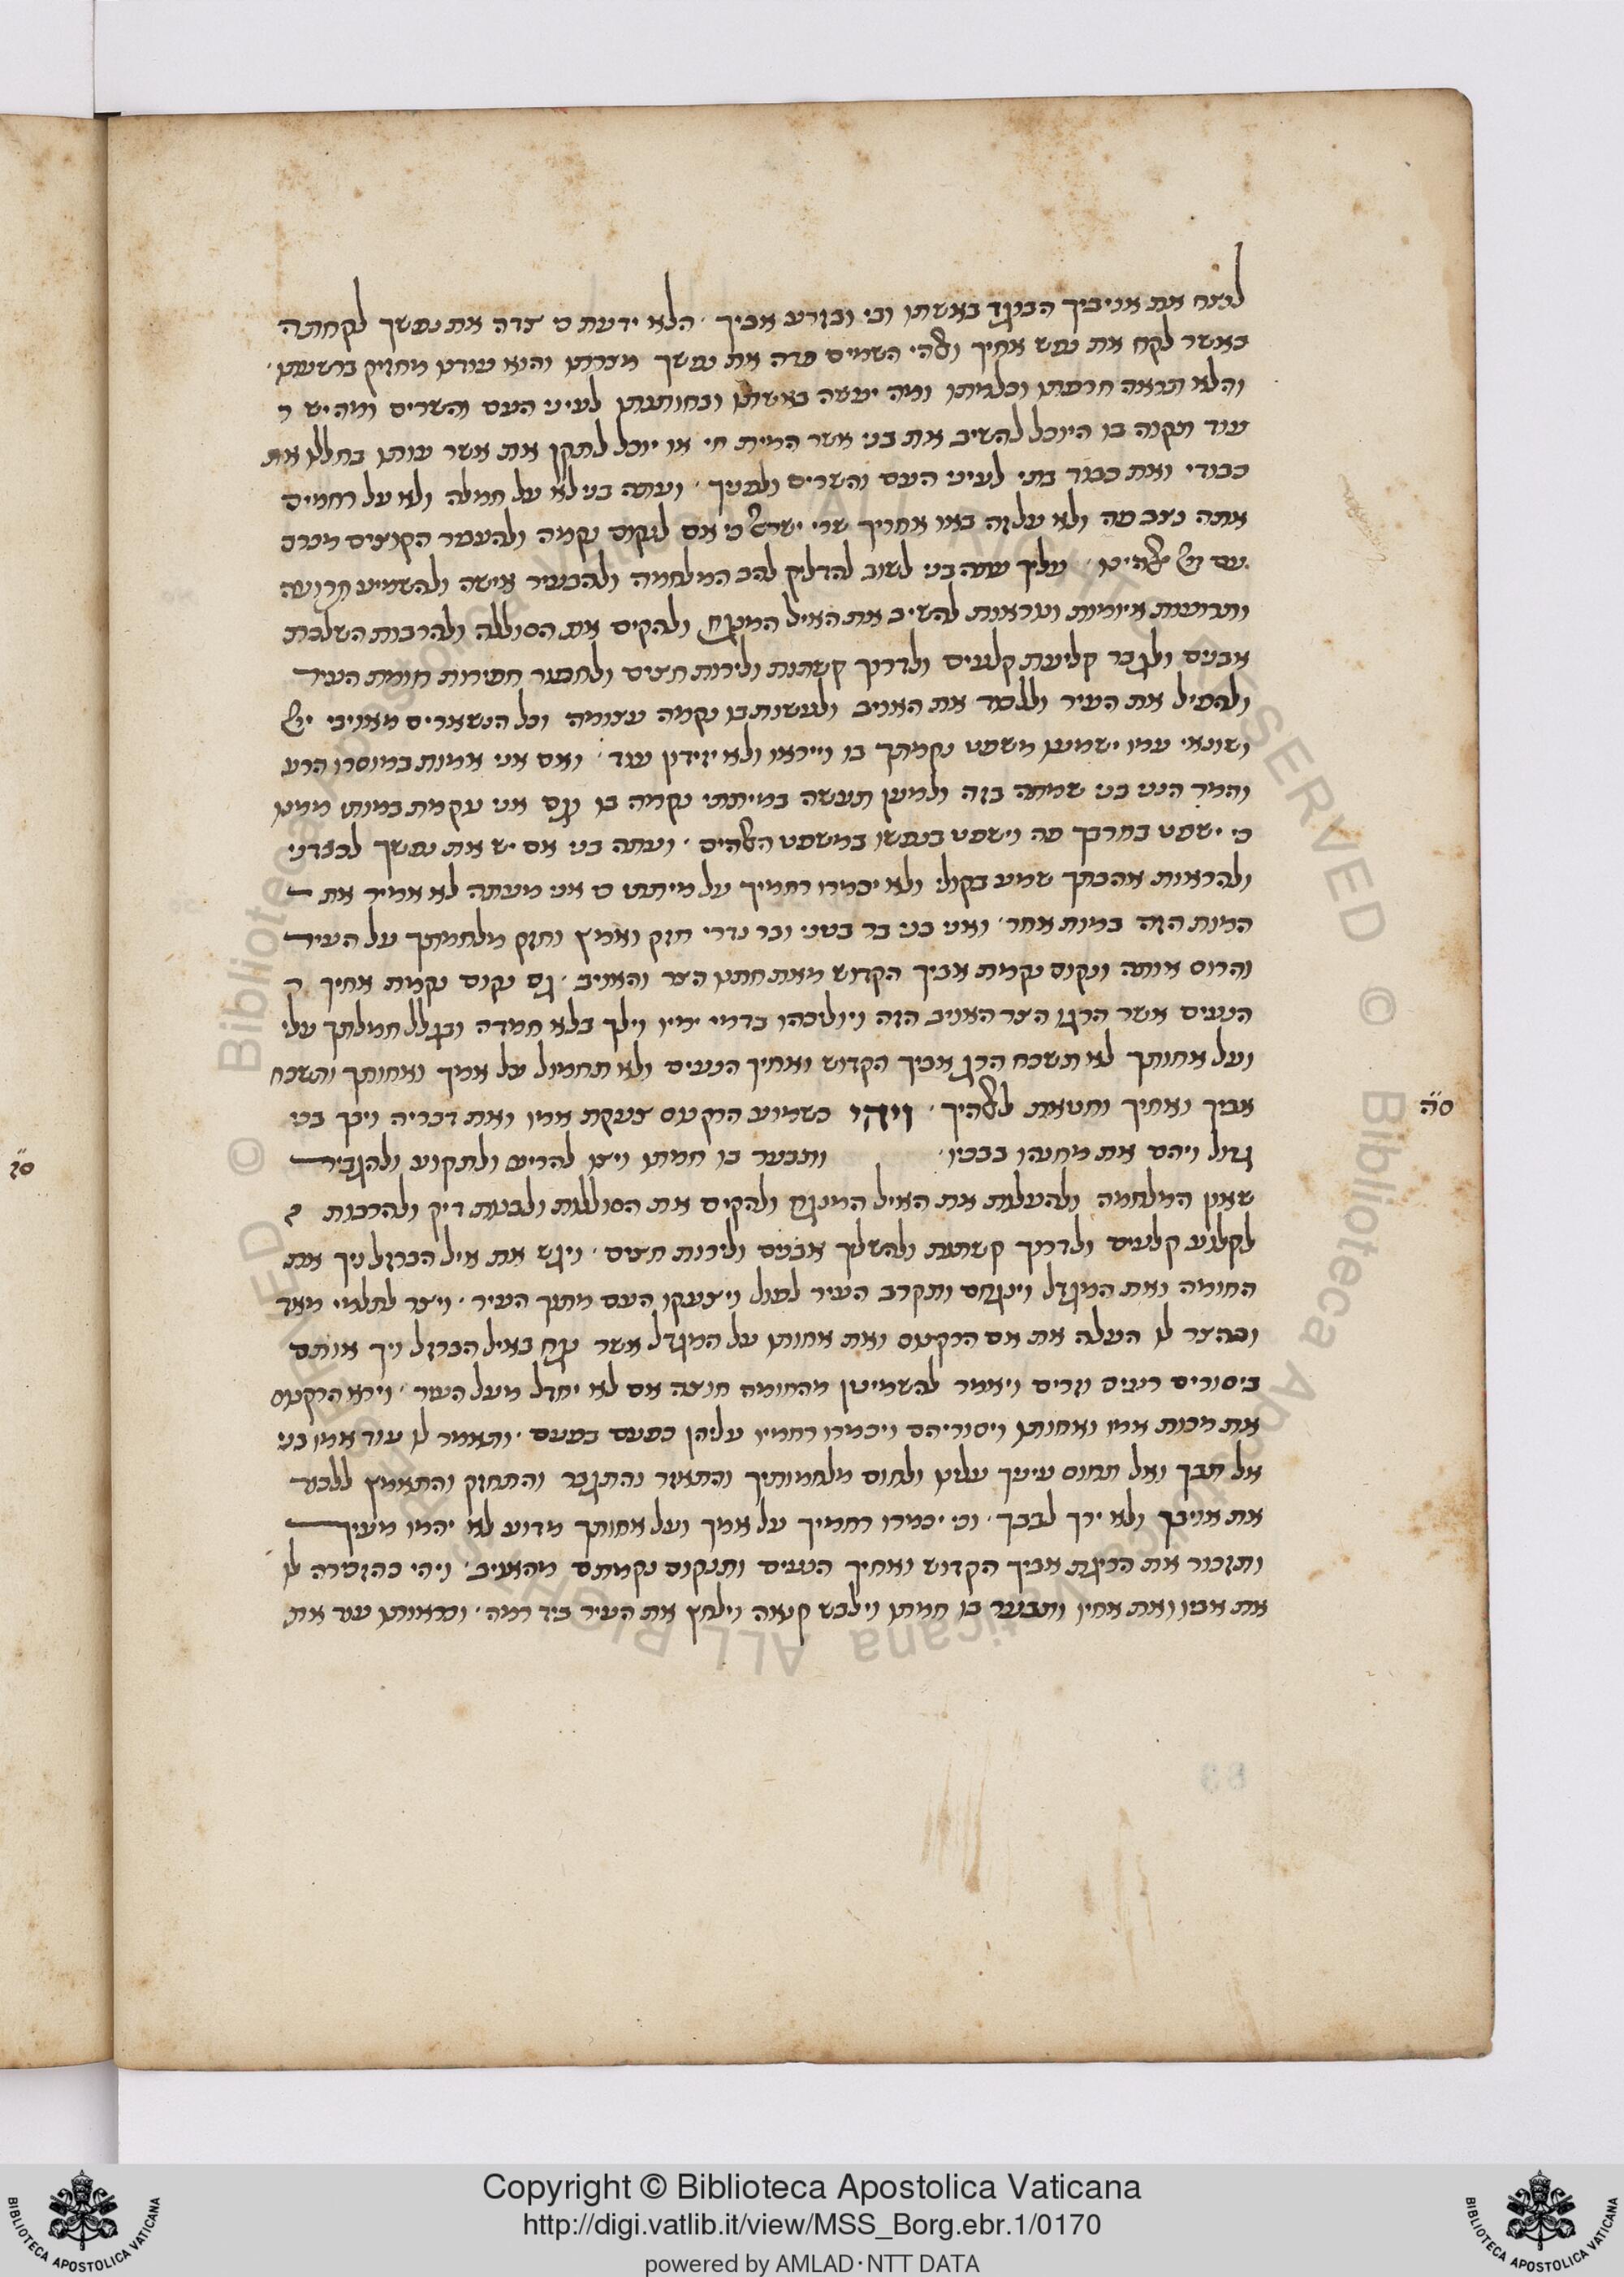 לנצח את אויביך הבוגד באשתו ובי ובזרע אביך הלא ידעת כי צדה את נפשך לקחתה
כאשר לקח את נפש אחיך ואלהי השמים פדה את נפשך מידו והוא עודנו מחזיק ברשעתו
והלא תראה חרפתו וכלמתו ומה יעשה באשתו ובחותנתו לעיני העם והשרים ומה יש
עוד תקוה בו היוכל להשיב את בני אשר המית חי או יוכל לתקן את אשר עותו בחללו את
כבודי ואת כבוד בתי לעיני העם והשרים ולפניך ועתה בני לא על חמלה ולא על רחמים
אתה נצב פה ולא על זה באו אחריך שרי ישראל כי אם לנקום נקמה ולהעביר הקוצים מכרם
עליך עתה בני לשוב להדליק להב המלחמה ולהבעיר אישה ולהשמיע תרועה
ותרועות איומות ונוראות להשיב את האיל המנגח ולהקים את הסוללה ולהרבות השלכת
אבנים ולגבר קליעת קלעים ולדרוך קשתות ולירות חצים ולחפור חפירות חומת העיר
ולהפיל את העיר וללכוד את האויב ולעשות בו נקמה עצומה וכל הנשארים מאויבי
ושונאי עמו ישמעו משפט נקמתך בו וייראו ולא יזידון עוד ואם אני אמות במוסרו הרע
והמר הנני בני שמחה בזה ולמען תעשה במיתתי נקמה בו וגם אני נוקמת במותי ממנו
כי ישפט בחרבך פה וישפט בנפשו במשפט האלהים ועתה בני אם יש את נפשך לכבדני
ולהראות אהבתך שמע בקולי ולא יכמרו רחמיך על מיתתי כי אני מעתה לא אמיר את
המות הזה במות אחר ואני בני בר בטני ובר נדרי חזק ואמץ וחזק מלחמתך על העיר
והרוס אותה ונקום נקמת אביך הקדוש מאת חתנו הצר והאויב גם נקום נקמת אחיך
הנעים אשר הרגו הצר האויב הזה ויוליכהו בדמי ימיו וילך בלא חמדה ובגלל חמלתך עלי
ועל אחותך לא תשכח הרג אביך הקדוש ואחיך הנעים ולא תחמול על אמך ואחותך ותשכח
אביך ואחיך וחטאת לאלהיך ויהי כשמוע הרקנוס צעקת אמו ואת דבריה ויבך בכי
גדול ויהס את מחנהו בבכיו ותבער בו חמתו ויצו להריע ולתקוע ולהגביר
שאון המלחמה ולהעלות את האיל המנגח ולהקים את הסוללות ולבנות דיק ולהרבות
לקלוע קלעים ולדרוך קשתות ולהשליך אבנים ולירות חצים ויגש את איל הברזל ויך את
החומה ואת המגדל וינגחם ותקרב העיר לנפול ויצעקו העם מתוך העיר ויצר לתלמי מאד
ובהצר לו העלה את אם הרקנוס ואת אחותו על המגדל אשר נגח באיל הברזל ויך אותם
ביסורים רעים וזרים ויאמר להשמיטן מהחומה חוצה אם לא יחדל מעל העיר וירא הרקנוס
את מכות אמו ואחותו ויסוריהם ויכמרו רחמיו עליהן כפעם בפעם ותאמר לו עוד אמו בני
אל תבך ואל תחוס עינך עלינו ולחום מלחמותיך והתאזר והתגבר והתחזק והתאמץ ללכוד
את אויבך ולא ירך לבבך וכי יכמרו רחמיך על אמך ועל אחותך מדוע לא יהמו מעיך
ותזכור את הריגת אביך הקדוש ואחיך הנעים ותנקום נקמתם מהאויב ויהי כהזכרה לו
את אביו ואת אחיו ותבער בו חמתו וילבש קנאה וילחץ את העיר ביד רמה ובראותו עוד את
ס"ה
ס"ו
Copyright © Biblioteca Apostolica Vaticana
http://digi.vatlib.it/view/MSS_Borg.ebr.1/0170
powered by AMLAD·NTT DATA